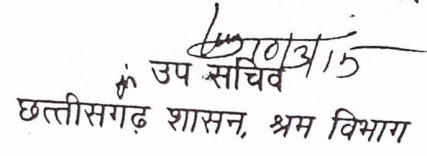 10/3/15
उप सचिव
छत्तीसगढ़ शासन, श्रम विभाग